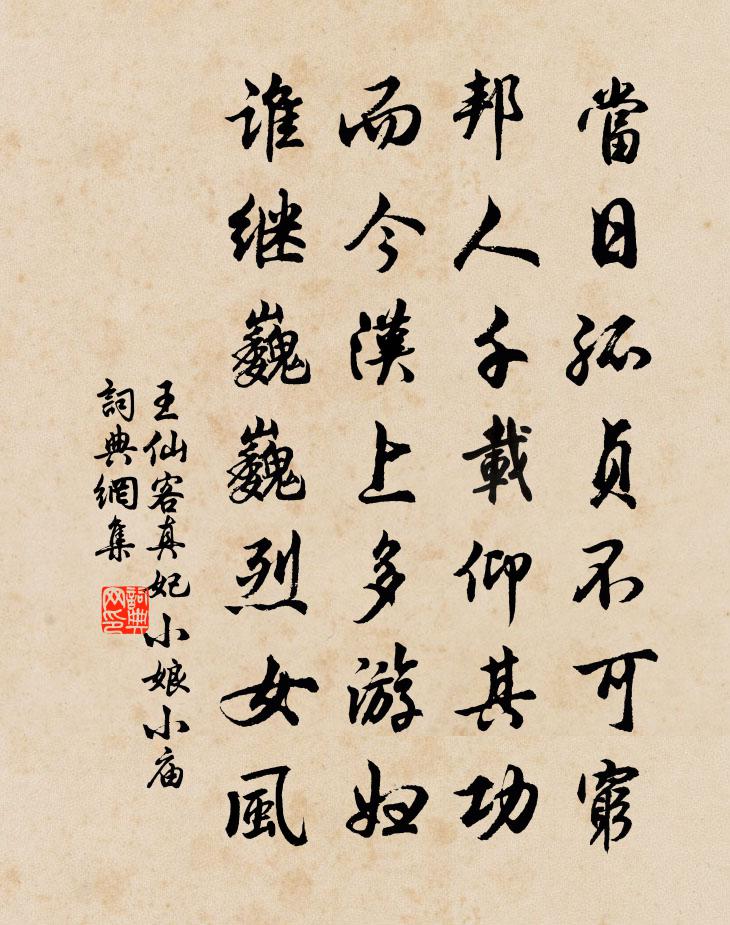 當日孤貞不可窮
邦人千載仰其功
而今漢上多游妇
谁继巍巍烈女風
王仙客真妃小娘小庙
詞典網集
詞典网印